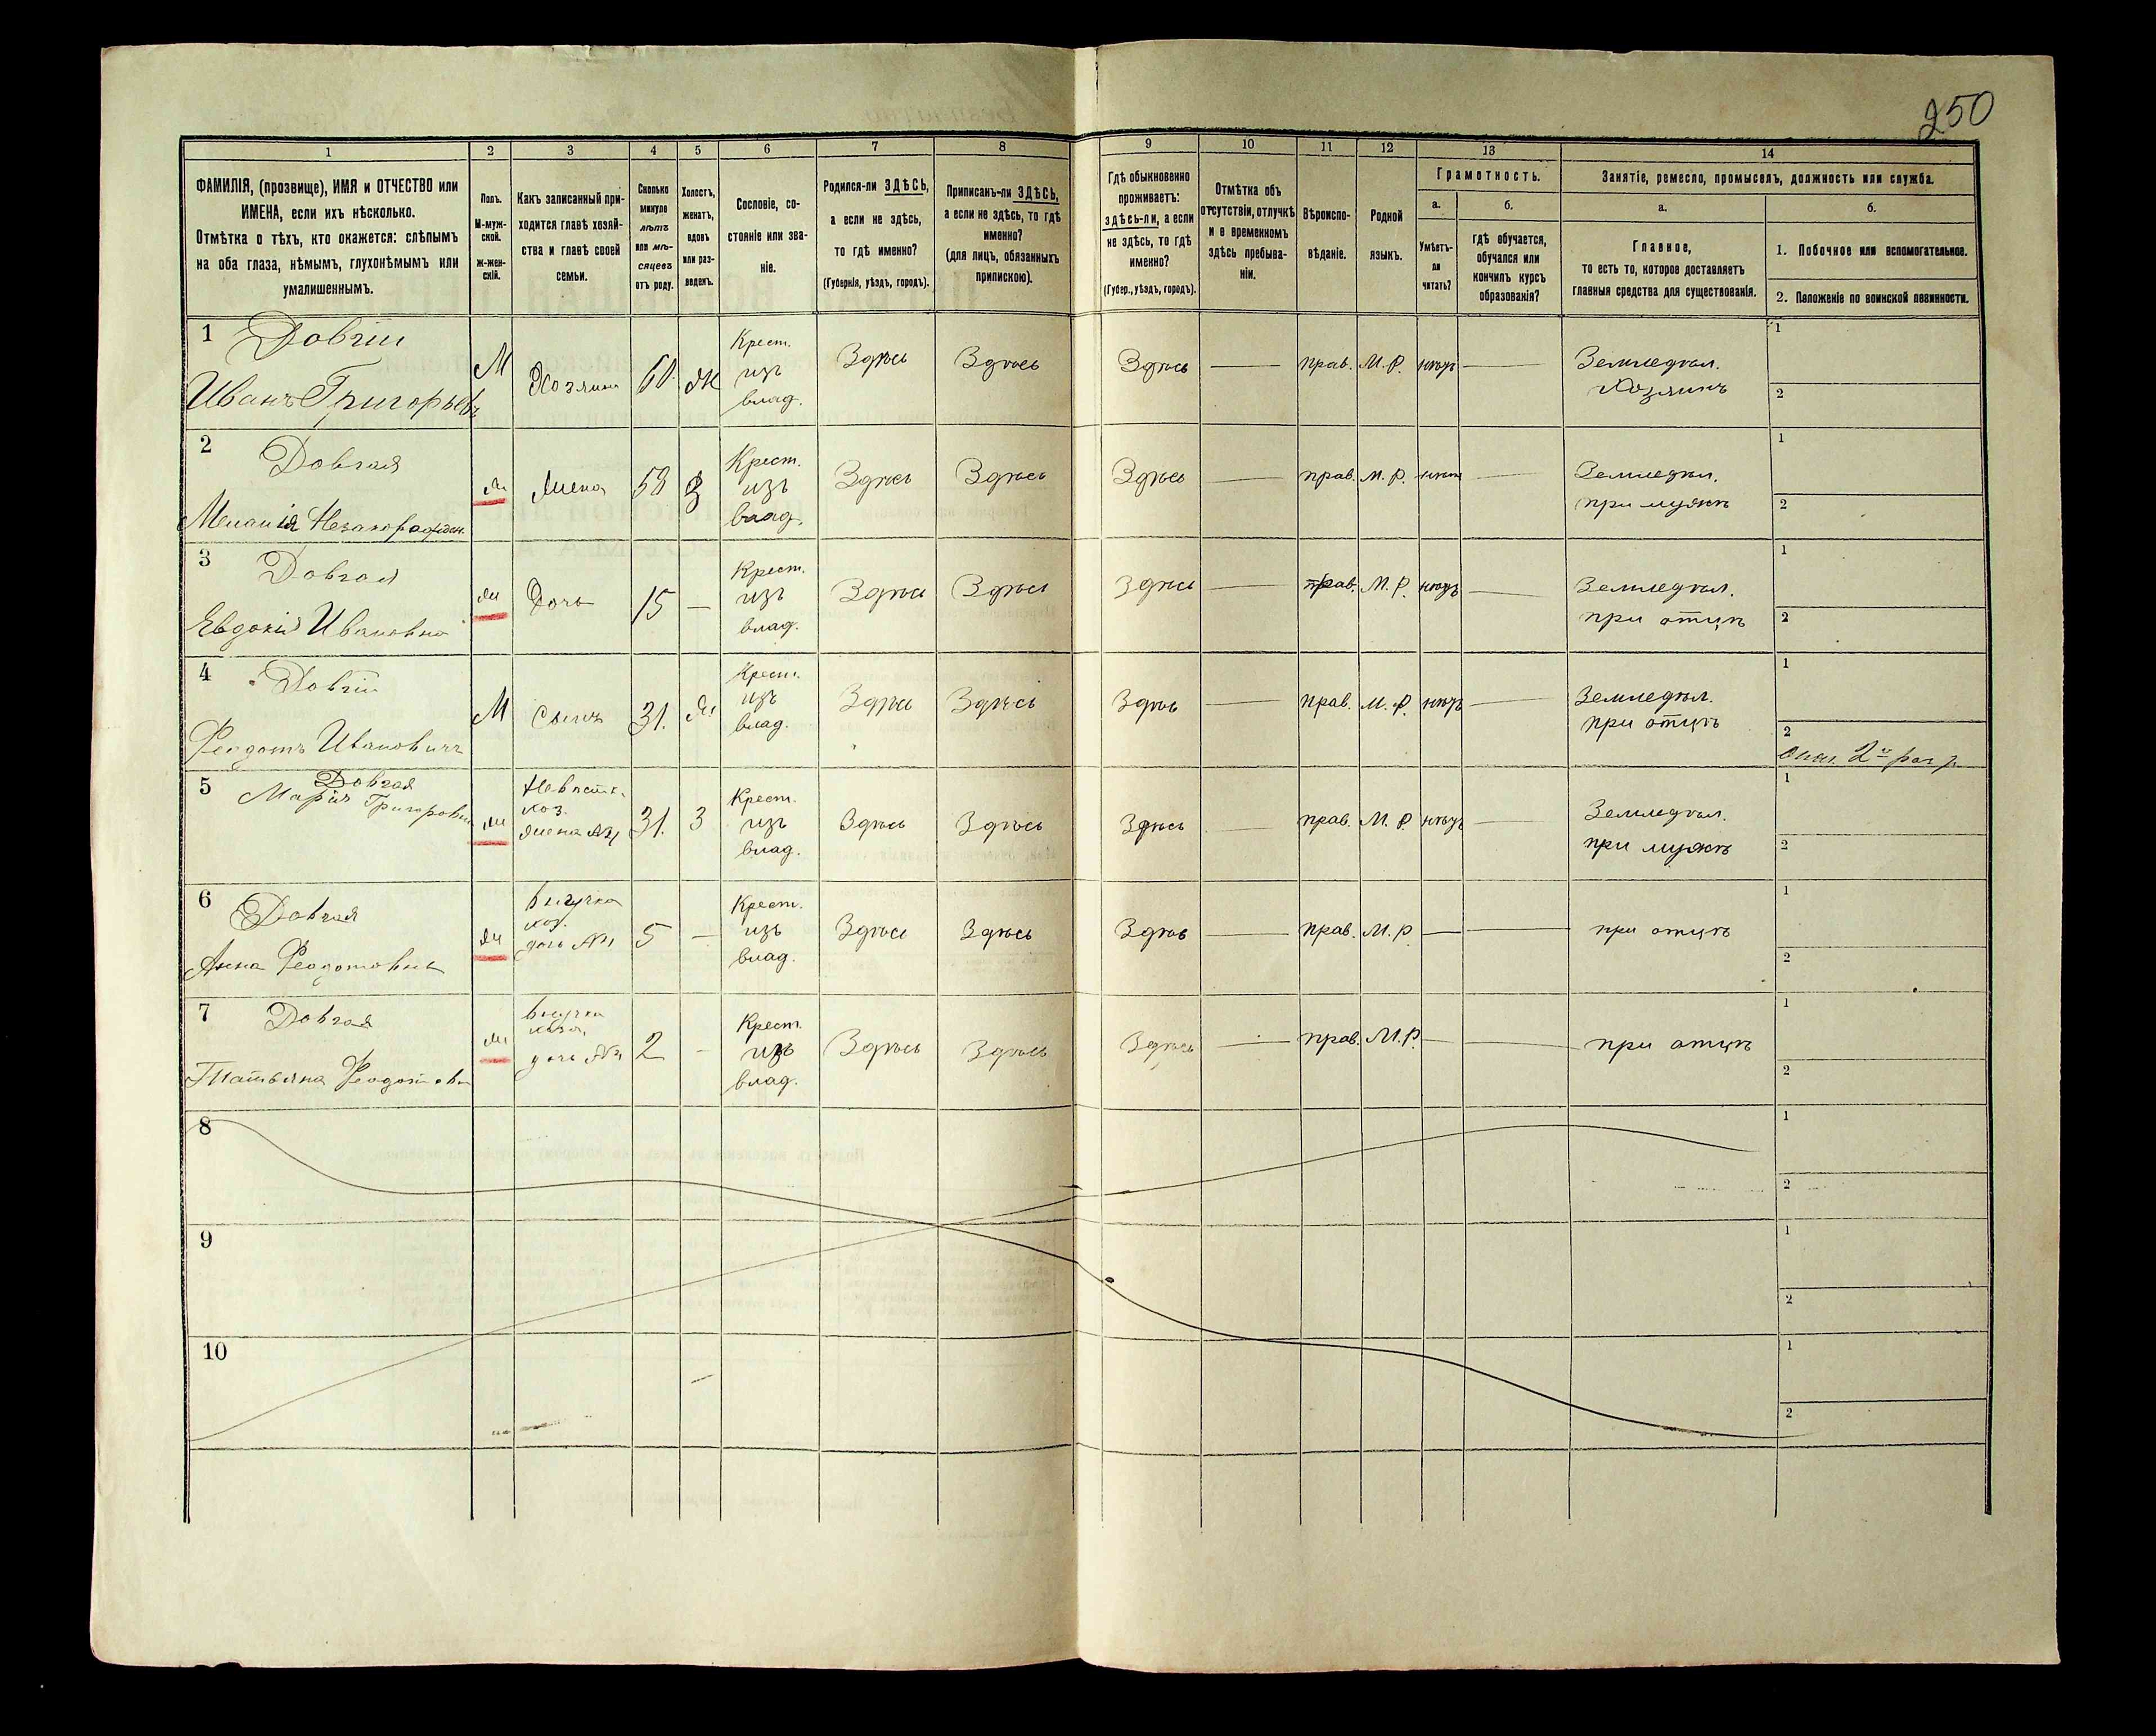 250
1 2 3 4 5 6 7 8 9 10 11 12 13 14
ФАМИЛІЯ, (прозвище), ИМЯ и ОТЧЕСТВО или
ИМЕНА, если ихъ нѣсколько.
Отмѣтка о тѣхъ, кто окажется: слѣпымъ
на оба глаза, нѣмымъ, глухонѣмымъ или
умалишеннымъ.
Полъ.
М-муж-
ской.
ж-жен-
скій.
Какъ записанный при-
ходится главѣ хозяй-
ства и главѣ своей
семьи.
Сколько
минуло
лѣтъ
или мѣ-
сяцевъ
отъ роду.
Холостъ,
женатъ,
вдовъ
или раз-
веденъ.
Сословіе, со-
стояніе или зва-
ніе.
Родился-ли ЗДѢСЬ,
а если не здѣсь,
то гдѣ именно?
(Губернія, уѣздъ, городъ).
Приписанъ-ли ЗДѢСЬ,
а если не здѣсь, то гдѣ
именно?
(для лицъ, обязанныхъ
припискою).
Гдѣ обыкновенно
проживаетъ:
здѣсь-ли, а если
не здѣсь, то гдѣ
именно?
(Губер., уѣздъ, городъ).
Отмѣтка объ
отсутствіи, отлучкѣ
и о временномъ
здѣсь пребыва-
ніи.
Вѣроиспо-
вѣданіе.
Родной
языкъ.
Грамотность.
а.
Умѣетъ-
ли
читать?
б.
гдѣ обучается,
обучался или
кончилъ курсъ
образованія?
Занятіе, ремесло, промыселъ, должность или служба.
а.
Главное,
то есть то, которое доставляетъ
главныя средства для существованія.
б.
1. Побочное или вспомогательное.
2. Положеніе по воинской повинности.
1 Довгій
Иванъ Григорьевъ
М
Хозяинъ
60
Ж
Крест.
изъ
влад.
Здѣсь
Здѣсь
Здѣсь
—
прав.
М. Р.
нѣтъ
—
Земледѣл.
Хозяинъ
1
2
2 Довгая
Меланія
ж
Жена
58
З
Крест.
изъ
влад.
Здѣсь
Здѣсь
Здѣсь
—
прав.
М. Р.
нѣтъ
—
Земледѣл.
при мужѣ
1
2
3 Довгая
Евдокія Ивановна
ж
Дочь
15
—
Крест.
изъ
влад.
Здѣсь
Здѣсь
Здѣсь
—
прав.
М. Р.
нѣтъ
—
Земледѣл.
при отцѣ
1
2
4 Довгій
Феодотъ Ивановичъ
М
Сынъ
31.
ж
Крест.
изъ
влад.
Здѣсь
Здѣсь
Здѣсь
—
прав.
М. Р.
нѣтъ
—
Земледѣл.
при отцѣ
1
2
2й раз р.
5 Довгая
Марія Григоровна
ж
Невѣстк.
хоз.
жена №4
31.
З
Крест.
изъ
влад.
Здѣсь
Здѣсь
Здѣсь
—
прав.
М. Р.
нѣтъ
—
Земледѣл.
при мужѣ
1
2
6 Довгая
Анна Феодотовна
ж
Внучка
хоз.
дочь №4
5
—
Крест.
изъ
влад.
Здѣсь
Здѣсь
Здѣсь
—
прав.
М. Р
—
—
при отцѣ
1
2
7 Довгая
Татьяна Феодотовн
ж
Внучка
хозя.
дочь №4
2
-
Крест.
изъ
влад.
Здѣсь
Здѣсь
Здѣсь
—
прав.
М. Р.
—
—
при отцѣ
1
2
8
1
2
9
1
2
10
1
2